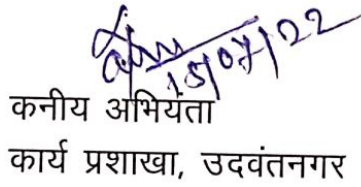 15/07/22
कनीय अभियंता
कार्य प्रशाखा, उदवंतनगर